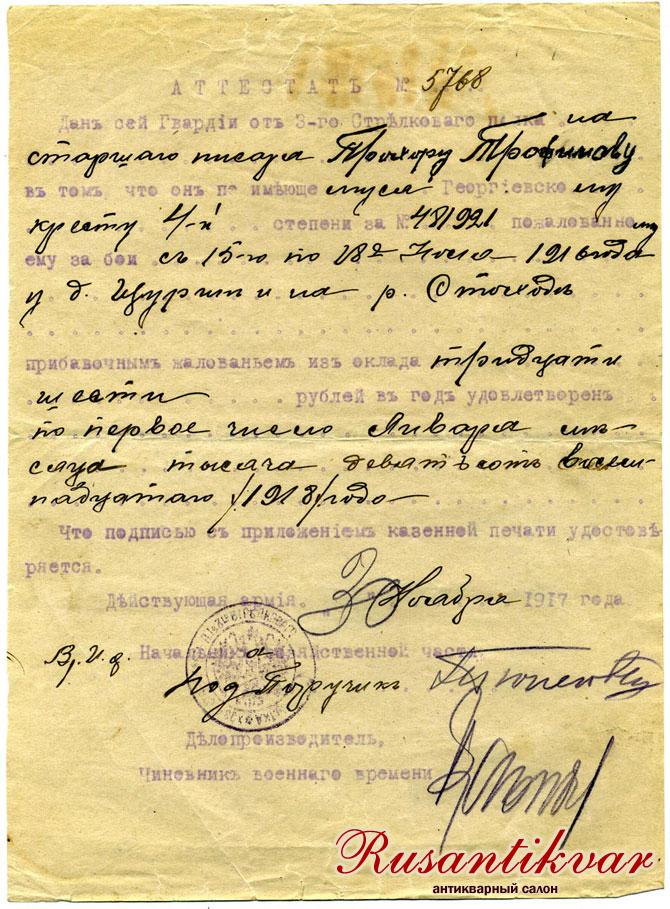 АТТЕСТАТЪ № 5768
Данъ сей Гвардіи отъ 3-го Стрѣлковаго полка на
старшаго писаря Прохору Трофимову
въ томъ, что онъ по имѣющемуся Георгіевскому
кресту 4-й степени за № 481921 пожалованному
ему за бои съ 15-го по 18е Іюля 1916 года
у д. Щурин и на р. Стоходъ
прибавочнымъ жалованьемъ изъ оклада тридцати
шести рублей въ годъ удовлетворенъ
по первое число Января мѣ-
сяца тысяча девятьсотъ восем-
надцатаго /1918/ года
Что подписью съ приложеніемъ казенной печати удостовѣ-
ряется.
Дѣйствующая армія. 3 Ноября 1917 года
Вр. И. д. Начальника хозяйственной части
Подпоручикъ
Дѣлопроизводитель,
Чиновникъ военнаго времени
Rusantikvar
антикварный салон